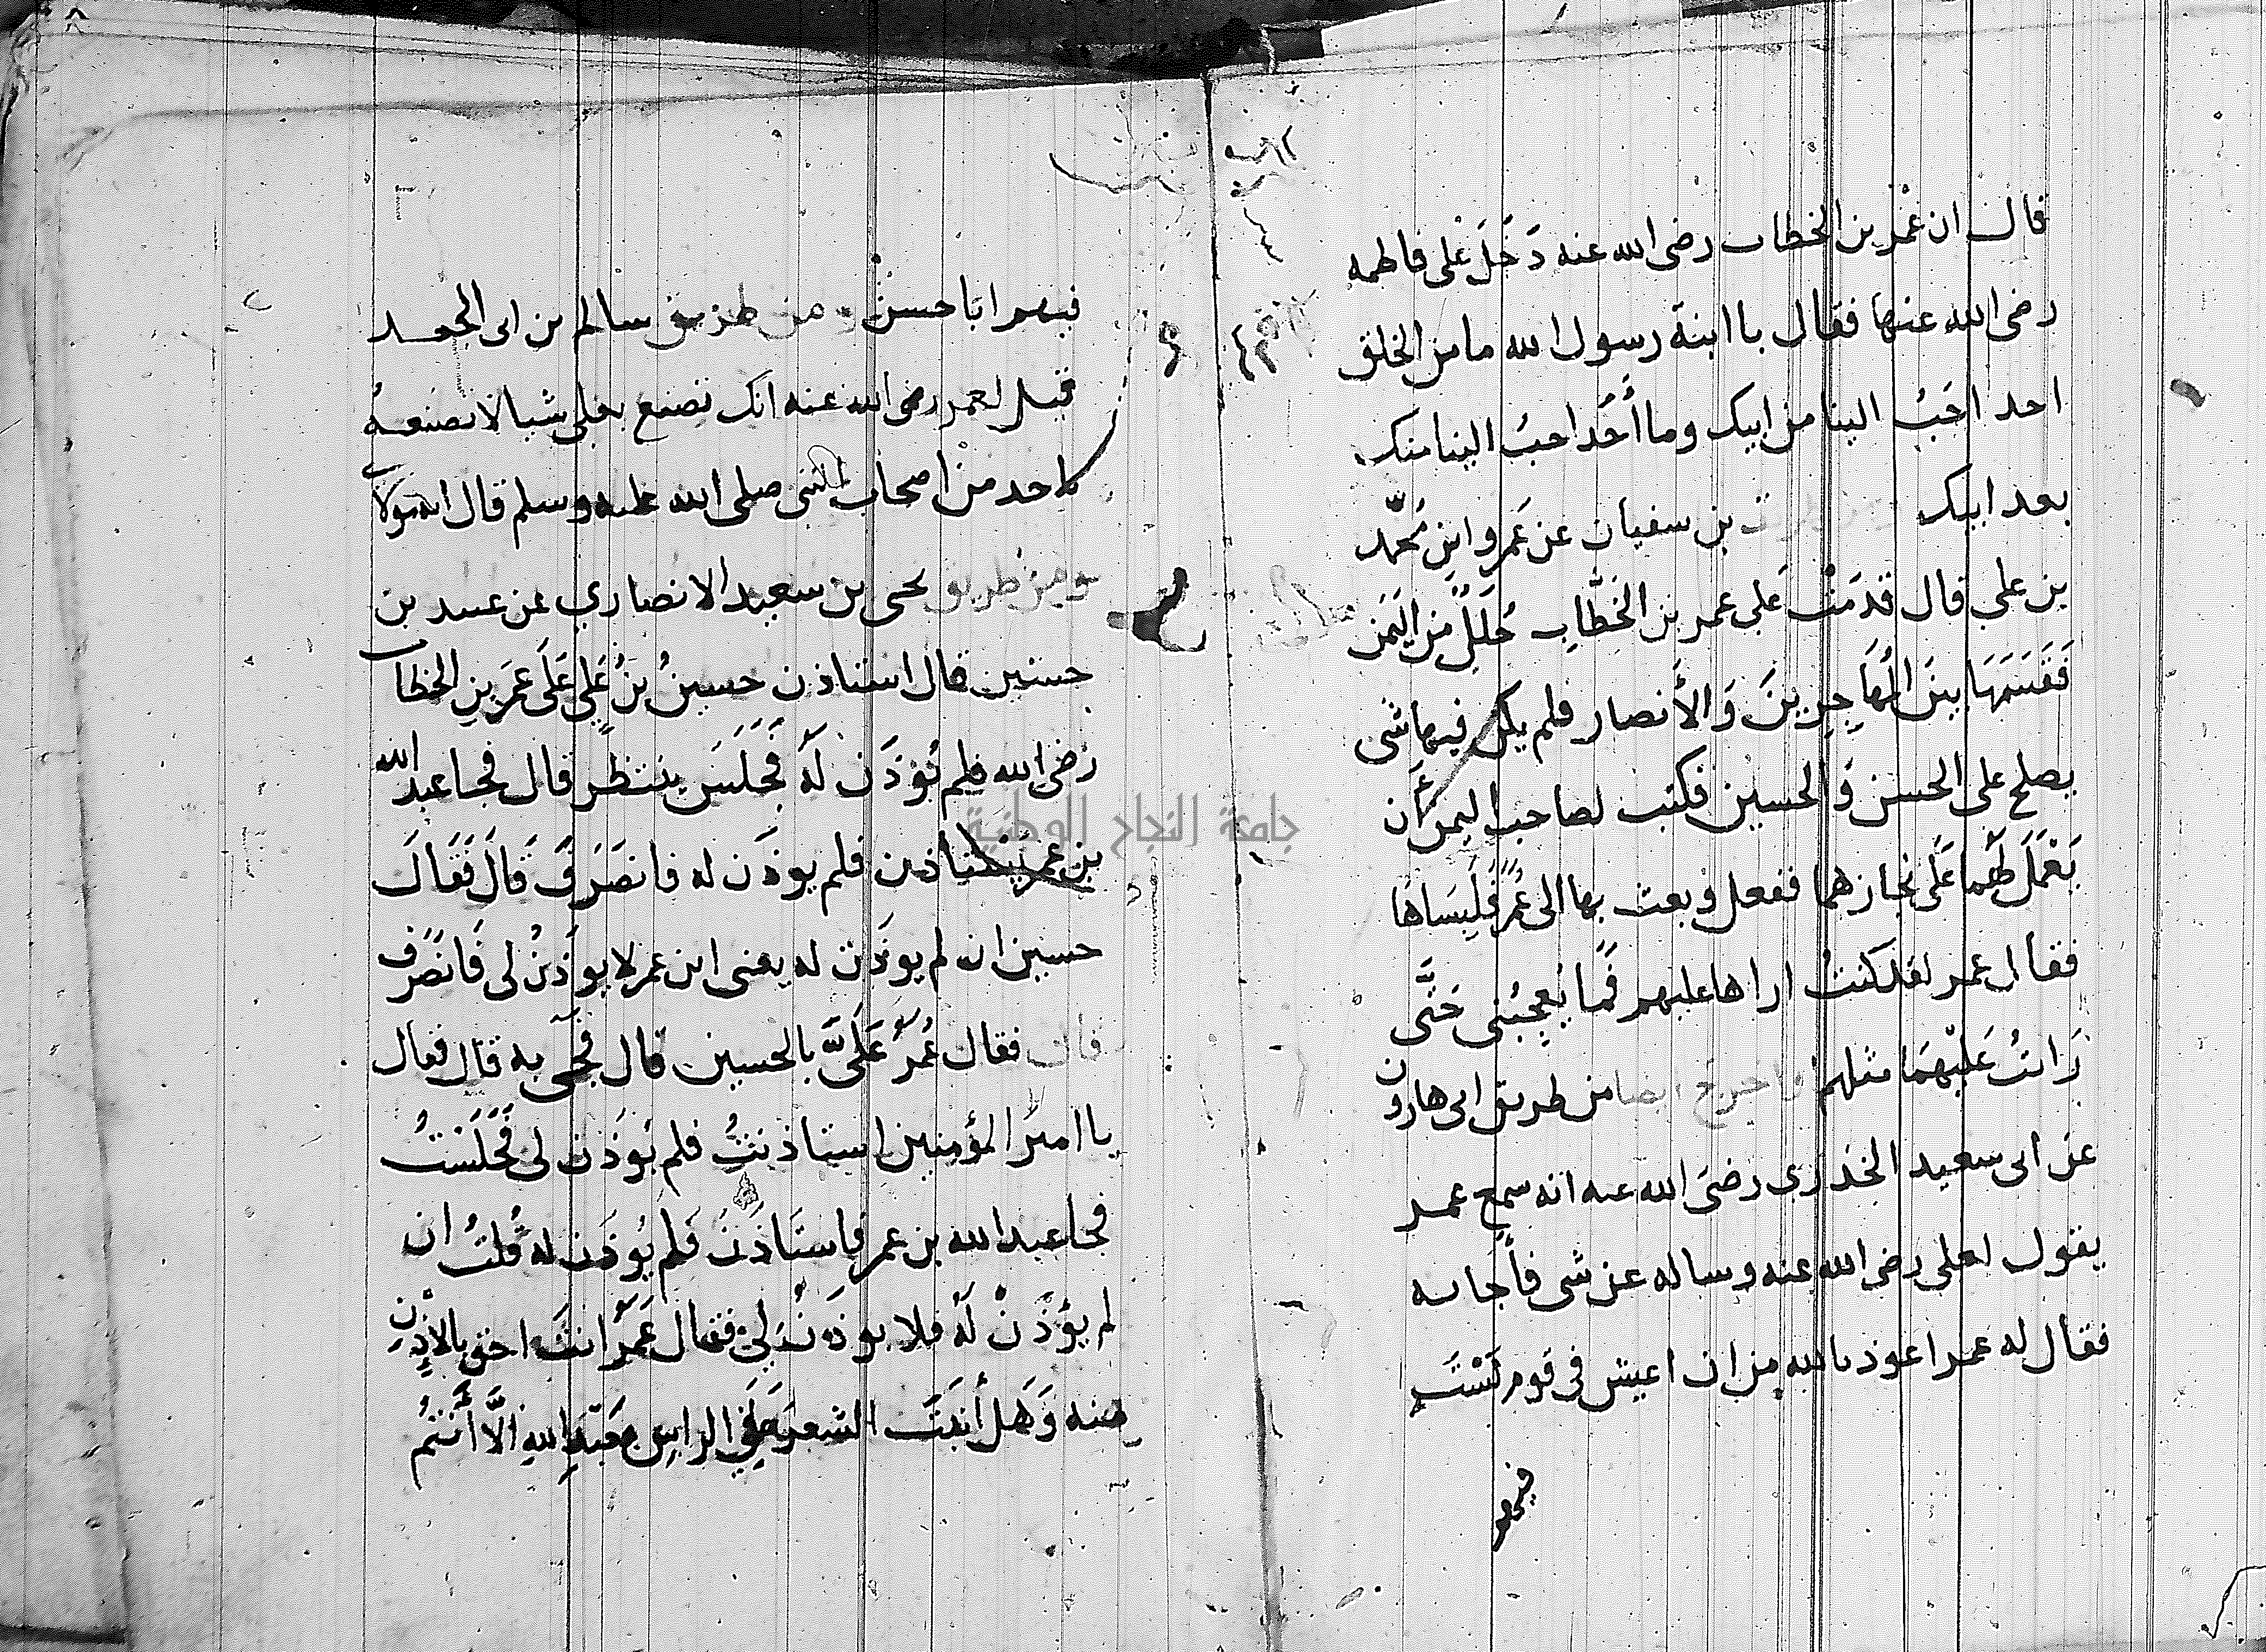 قال ان عُمَر بن الخطاب رضى الله عنه دَخَلَ عَلى فاطمه
رضى الله عنها فقال يا ابنة رسول الله ما من الخلق
احد احَبُ الينا من ابيك وما أَحَد احبُ الينا منك
بعد ابيك بن سفيان عن عَمرو ابن مُحمّد
بن على قال قدمَتْ عَلى عمر بن الخطَّابِ حُلَلٌ مِن اليَمَن
فَقَسَمَهَا بينَ المُهَاجِرِينَ وَالأَنصار فلم يكن فيها شى
يصلح على الحسن وَالحسين فكتب لصاحب اليمن أن
يَعْمَلَ لَهُما عَلى نجازهما ففعل وبعث بها الى عُمَرَ فَلَبِسَاهَا
فقال عمر لقد كنتُ اراها عليهم فَمَا يُعجِبُنى حَتَّى
رَاتُ عَليْهمَا مثلهم واخرج ايضا من طريق ابى هارون
عن ابى سعيد الخدرى رضى الله عنه انه سمع عمر
يقول لعلى رضى الله عنه وساله عن شى فأجابه
فقال له عمر اعوذ بالله من ان اعيش فى قوم لَسْتَ
فيهم
فيهم ابَا حسن ومن طريق سالم بن ابى الجعد
قيل لعمر رضى الله عنه انك تصنع بعلى شيا لا تصنعهُ
باحد من اصحاب النبى صلى الله عليه وسلم قال انه مولاى
ومن طريق يحى بن سعيد الانصاري عن عبيد بن
حسنين قال استاذن حسينُ بنُ عَلِي عَلَى عمَر بنِ الخطاب
رضى الله فلم يُؤذَن لَهُ فَجَلَسَ ينتظرُ قال فجا عبد الله
بن عمر يستاذن فلم يوذَن له فانصَرَفَ قَالَ فَقَالَ
حسين ان لم يوذَن له يعنى ابن عمر لا يوذَنْ لى فَانصَرف
قال فقال عُمَرُ عَلَىَّ بالحسين قال فَجِىَ به قال فقال
يا اميرَ المؤمنين استاذنتُ فلم يُوذَن لى فَجَلَسْتُ
فجا عبد الله بن عمر فاستَاذَنَ فلم يُوذَن له فَقُلتُ ان
لم يؤذَنْ لَهُ فلا يوذَنُ لِى فقال عُمَرُ انتَ احق بالاذِنِ
منه وَهَل أنبَتَ الشعر فى الراس بعد الله اِلَّا أَنتُم
جامعة النجاح الوطنية